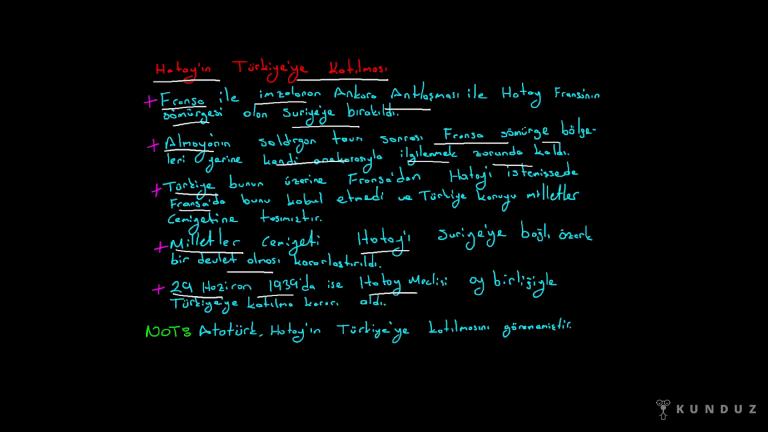 Hatay'ın Türkiye'ye Katılması
+ Fransa ile imzalanan Ankara Antlaşması ile Hatay Fransa'nın
sömürgesi olan Suriye'ye bırakıldı.
+ Almanya'nın saldırgan tavrı sonrası Fransa sömürge bölge-
leri yerine kendi ile ilgilenmek zorunda kaldı.
+ Türkiye bunun üzerine Fransa'dan Hatay'ı istemişsede
Fransa'da bunu kabul etmedi ve Türkiye konuyu milletler
Cemiyetine taşımıştır.
+ Milletler Cemiyeti Hatay'ı Suriye'ye bağlı özerk
bir devlet olması kararlaştırıldı.
+ 29 Haziran 1939'da ise Hatay Meclisi oy birliğiyle
Türkiye'ye katılma kararı aldı.
NOT: Atatürk, Hatay'ın Türkiye'ye katılmasını görememiştir.
KUNDUZ